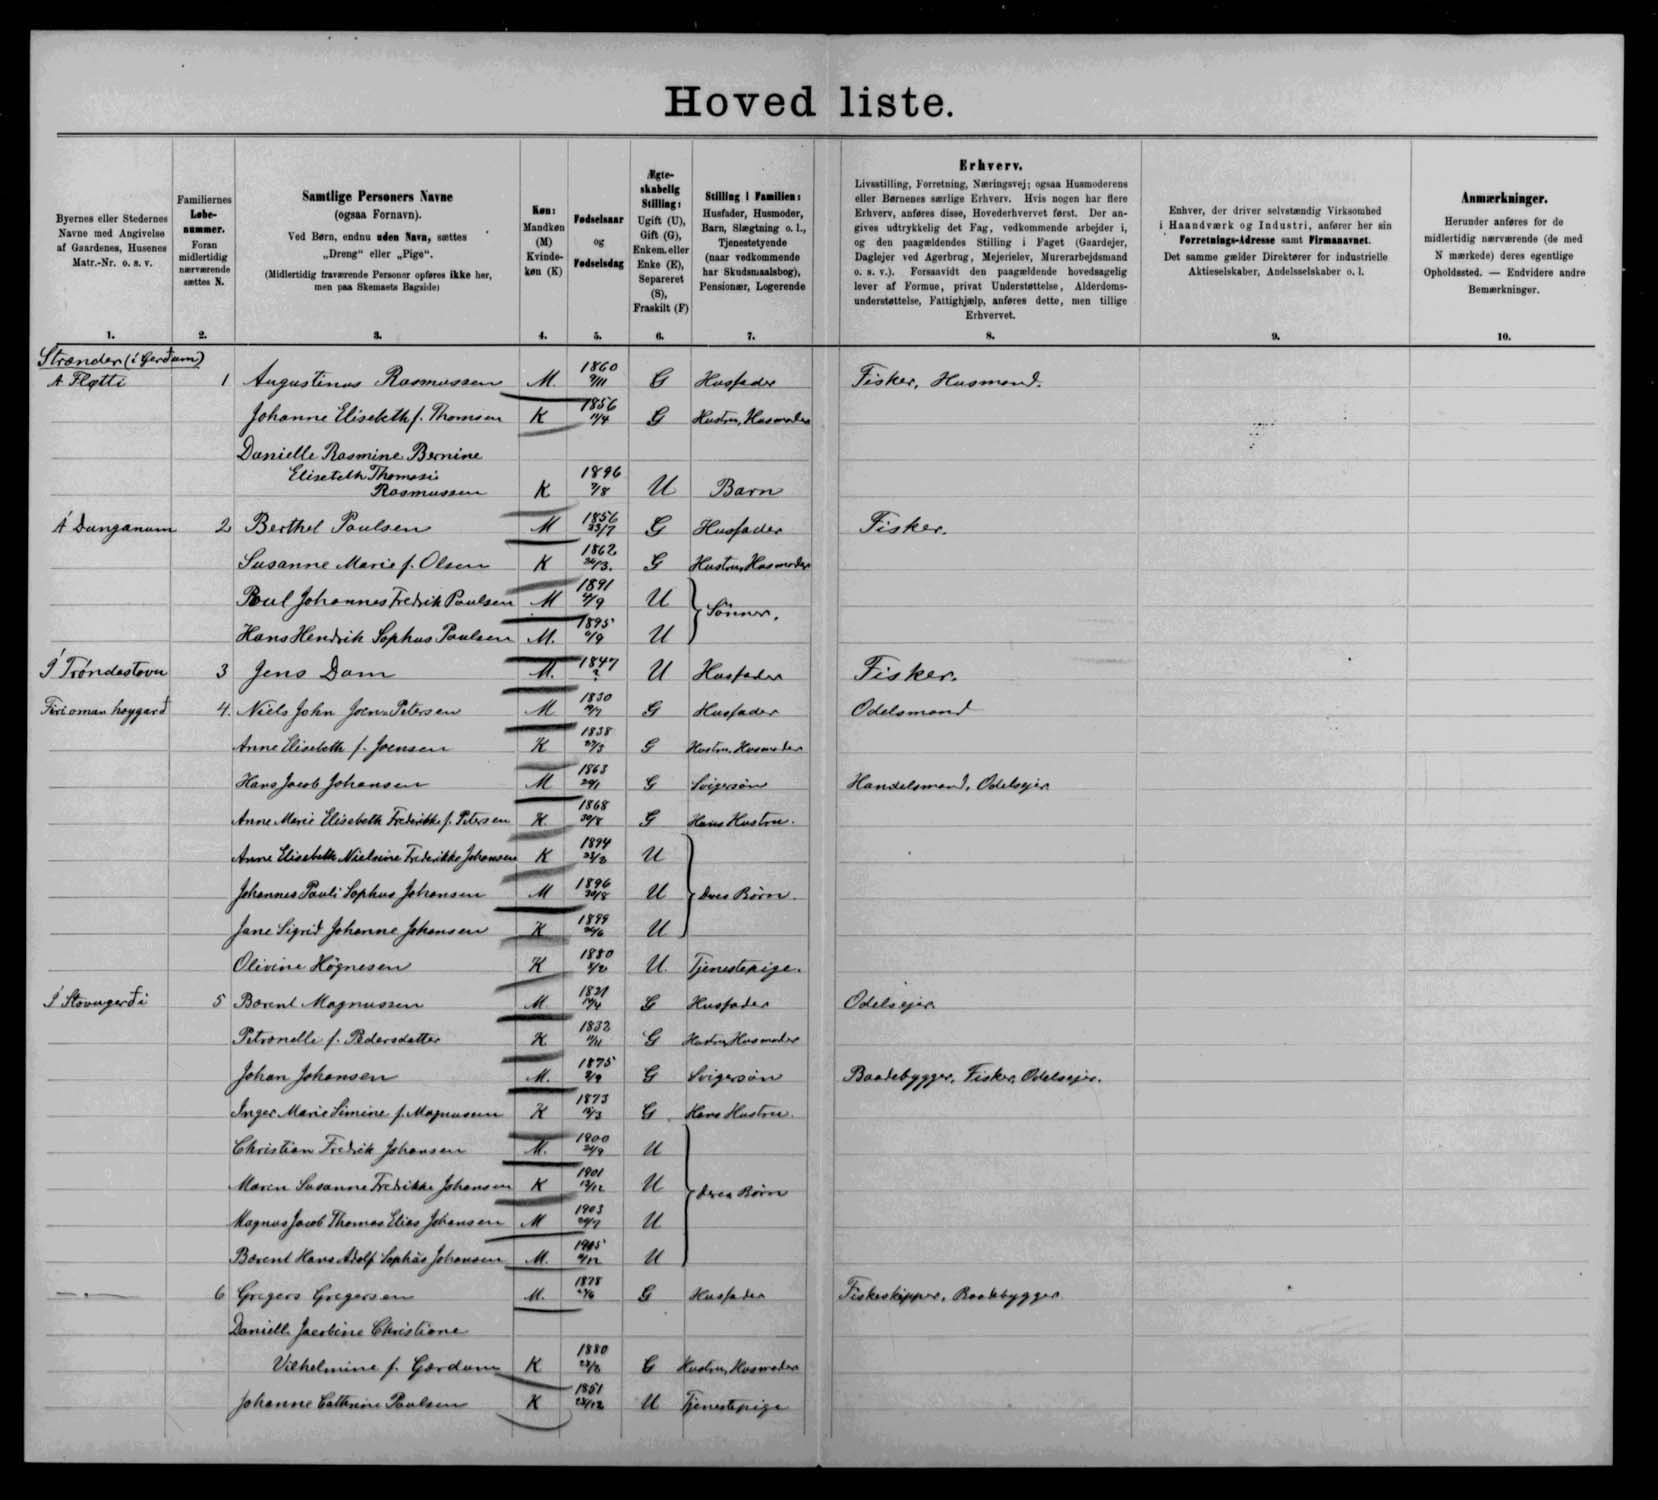 Hoved liste.
Byernes eller Stedernes
Navne med Angivelse
af Gaardenes, Husenes
Matr.-Nr. o. s. v.
1.
Familiernes
Løbe-
nummer.
Foran
midlertidig
nærværende
sættes N.
2.
Samtlige Personers Navne
(ogsaa Fornavn).
Ved Børn, endnu uden Navn, sættes
„Dreng“ eller „Pige“.
(Midlertidig fraværende Personer opføres ikke her,
men paa Skemaets Bagside)
3.
Køn:
Mandkøn
(M)
Kvinde-
køn (K)
4.
Fødselsaar
og
Fødselsdag
5.
Ægte-
skabelig
Stilling:
Ugift (U),
Gift (G),
Enkem. eller
Enke (E),
Separeret
(S),
Fraskilt (F)
6.
Stilling i Familien:
Husfader, Husmoder,
Barn, Slægtning o. l.,
Tjenestetyende
(naar vedkommende
har Skudsmaalsbog),
Pensionær, Logerende
7.
Erhverv.
Livsstilling, Forretning, Næringsvej; ogsaa Husmoderens
eller Børnenes særlige Erhverv. Hvis nogen har flere
Erhverv, anføres disse, Hovederhvervet først. Der an-
gives udtrykkelig det Fag, vedkommende arbejder i,
og den paagældendes Stilling i Faget (Gaardejer,
Daglejer ved Agerbrug, Mejerielev, Murerarbejdsmand
o. s. v.). Forsaavidt den paagældende hovedsagelig
lever af Formue, privat Understøttelse, Alderdoms-
understøttelse, Fattighjælp, anføres dette, men tillige
Erhvervet.
8.
Enhver, der driver selvstændig Virksomhed
i Haandværk og Industri, anfører her sin
Forretnings-Adresse samt Firmanavnet.
Det samme gælder Direktører for industrielle
Aktieselskaber, Andelsselskaber o. l.
9.
Anmærkninger.
Herunder anføres for de
midlertidig nærværende (de med
N mærkede) deres egentlige
Opholdssted. — Endvidere andre
Bemærkninger.
10.
Strænder (i Gerðum)
Á Fløtti 1 Augustinus Rasmussen M. 1860 9/11 G Husfader Fisker, Husmand.
Johanne Elisebeth f. Thomsen K 1856 11/4 G Hustru, Husmoder
Danielle Rasmine Bernine
Elisebeth Thomasia
Rasmussen K 1896 7/8 U Barn
Á Dunganum 2 Berthel Poulsen M 1856 23/7 G Husfader Fisker.
Susanne Marie f. Olsen K 1862 26/3. G Hustru, Husmoder
Poul Johannes Fredrik Poulsen M 1891 /9 U
Sönner.
Hans Hendrik Sophus Poulsen M. 1895 /9 U
Í Tróndastovu 3 Jens Dam M. 1847 ? U Husfader Fisker.
Firi oman høygarð 4. Niels John Joen-Petersen M 1830 /7 G Husfader Odelsmand
Anne Elisebeth f. Joensen K 1838 27/3 G Hustru, Husmoder
Hans Jacob Johansen M 1863 29/1 G Svigersøn Handelsmand, Odelsejer.
Anne Marie Elisebeth Frederikke f. Petersen K. 1868 30/8 G Hans Hustru.
Anne Elisebeth Nielsine Frederikke Johansen K 1894 23/2 U
Johannes Pauli Sophus Johansen M 1896 20/8 U deres Børn.
Jane Sigrid Johanne Johansen K 1899 26/6 U
Olivine Høgnesen K 1880 8/2 U. Tjenestepige.
Í Stovugerði 5 Barent Magnussen M. 1821 14/4 G Husfader Odelsejer.
Petronelle f. Pedersdatter K 1832 11/11 G Hustru, Husmoder
Johan Johansen M. 1875 2/9 G Svigersøn Baadebygger, Fisker, Odelsejer.
Inger Marie Simine f. Magnussen K 1873 /3 G. Hans Hustru.
Christian Fredrik Johansen M. 1900 21/9 U
Maren Susanne Fredrikke Johansen K 1901 13/12 U deres Børn
Magnus Jacob Thomas Elias Johansen M 1903 20/7 U
Barent Hans Adolf Sophus Johansen M. 1905 /12 U
— " — 6 Gregers Gregersen M. 1878 /6 G Husfader Fiskeskipper, Baadebygger
Danielle Jacobine Christiane
Vilhelmine f. Gærdum K 1880 23/2 G Hustru, Husmoder
Johanne Cathrine Poulsen K 1851 23/12 U Tjenestepige